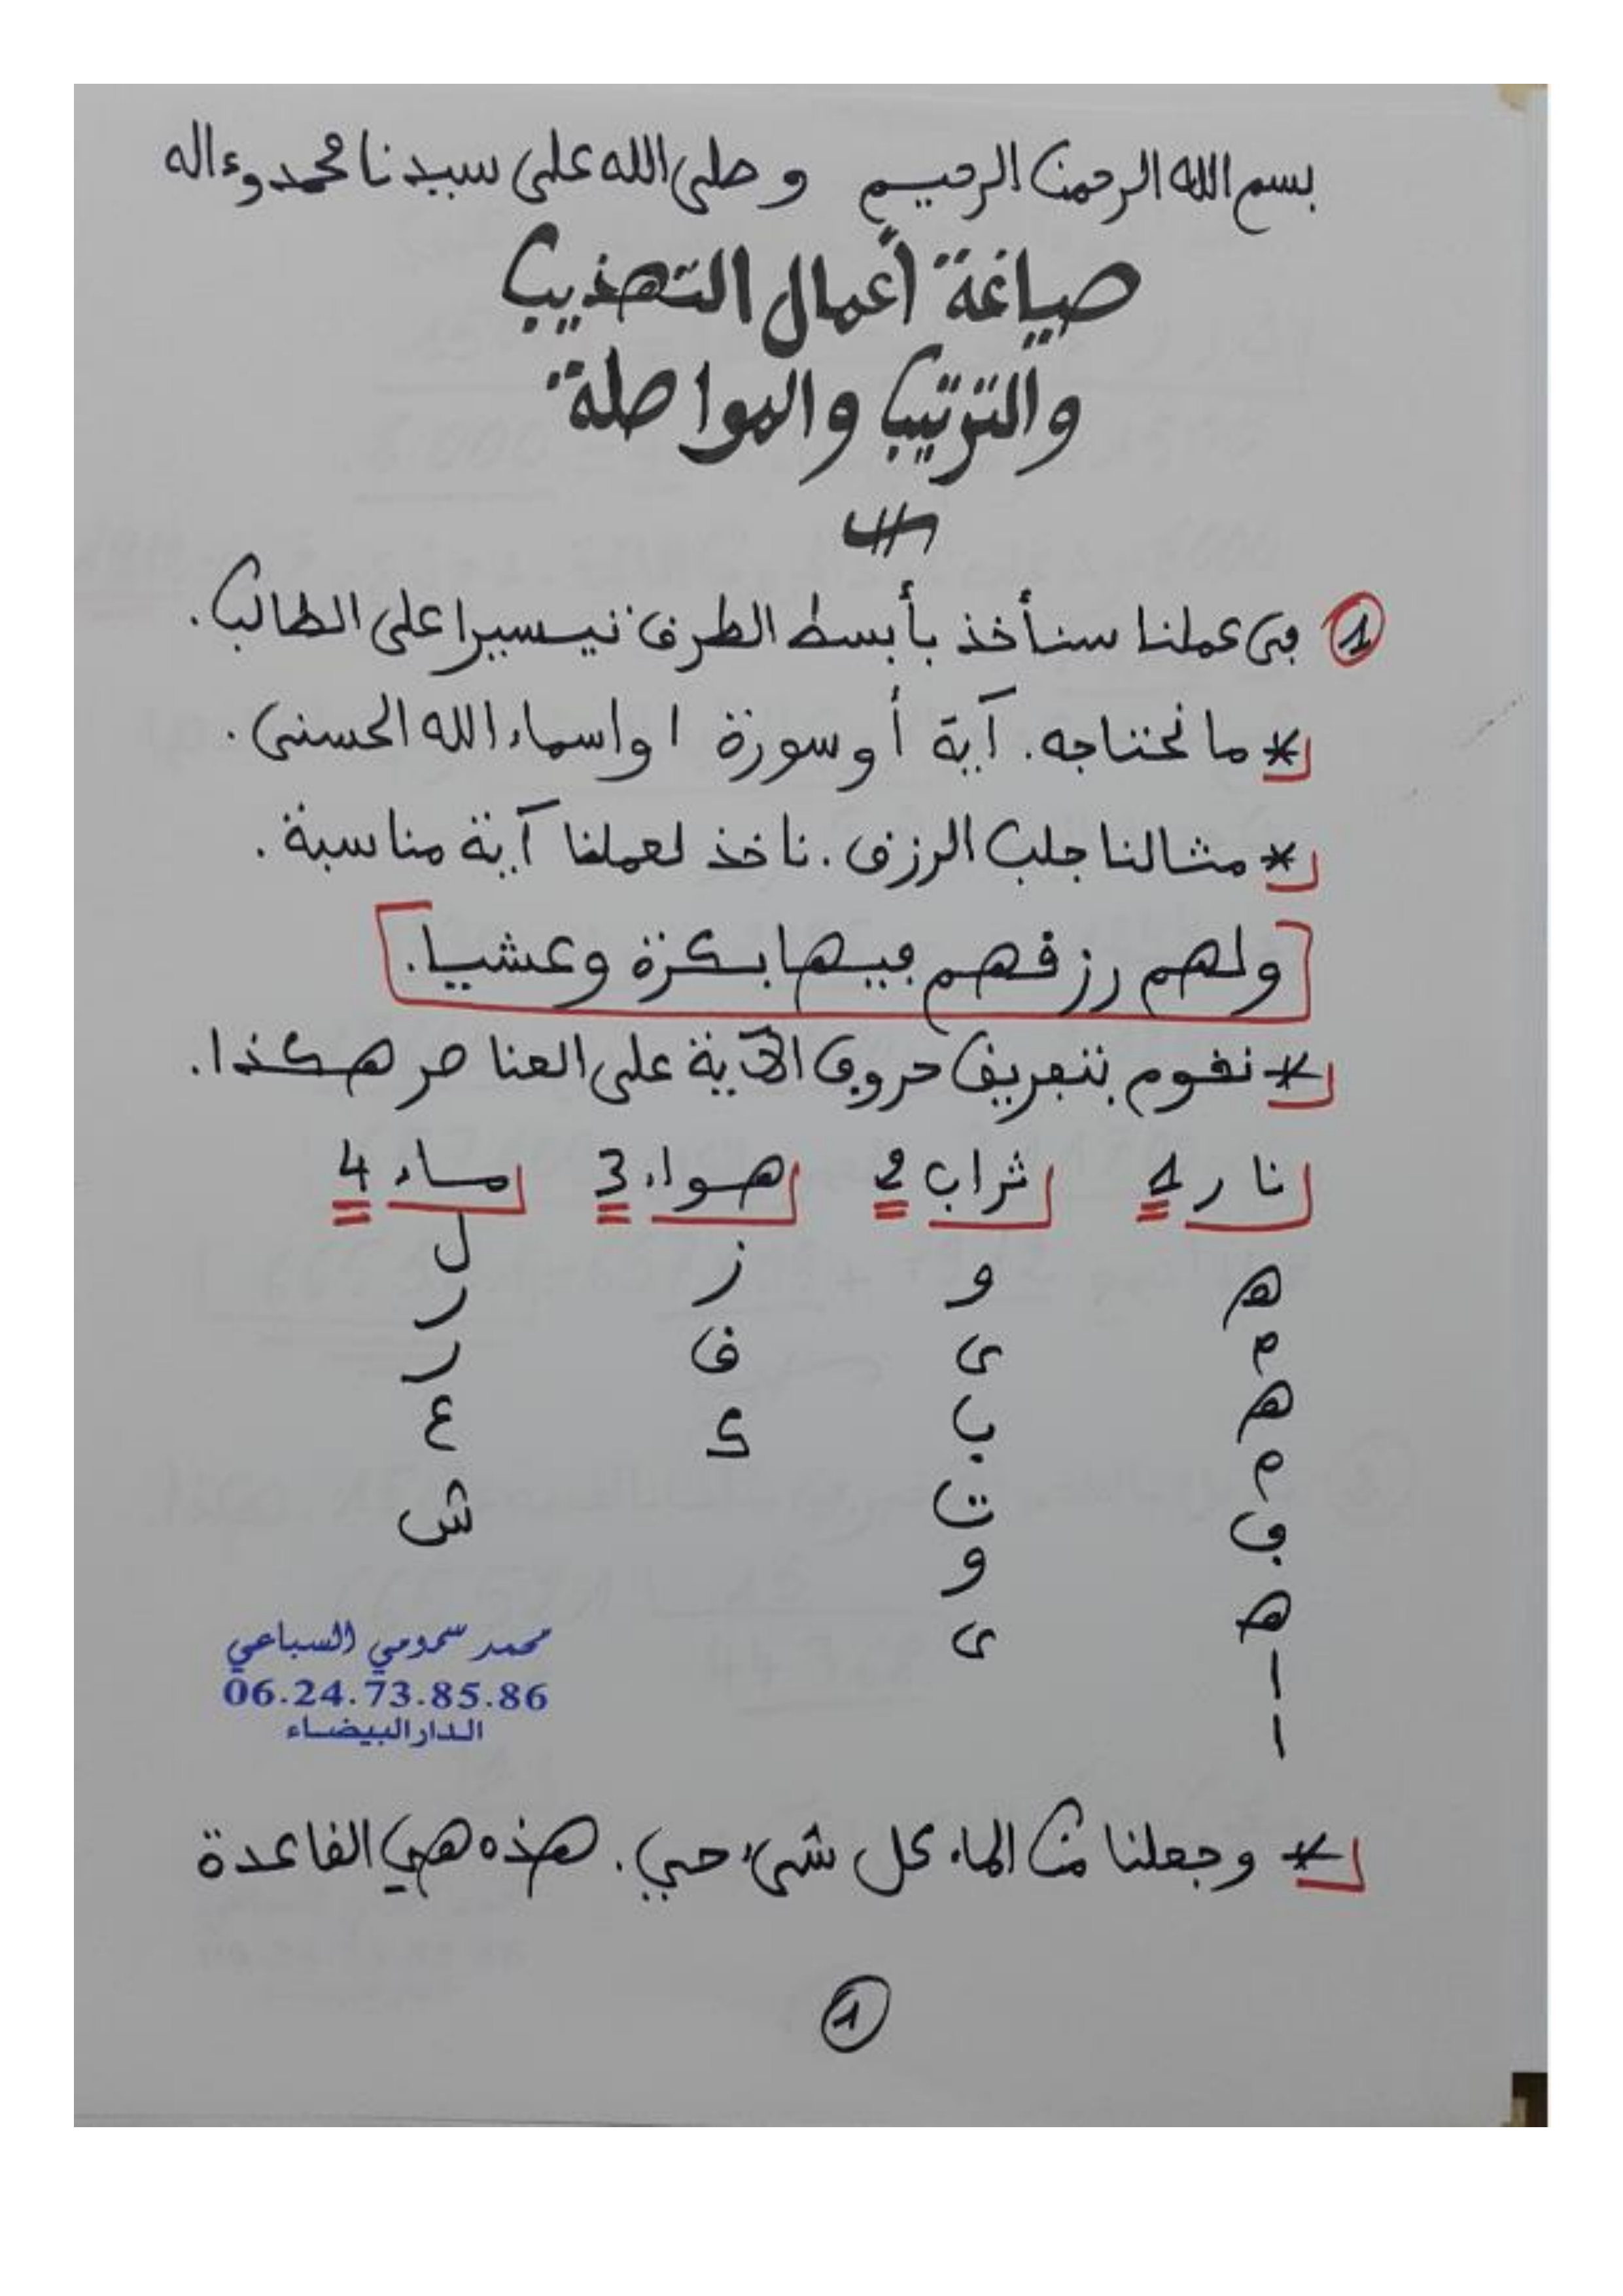 بسم الله الرحمن الرحيم وصلى الله على سيدنا محمد وءاله
صياغة أعمال التهذيب
والترتيب والمواصلة
1 في عملنا سنأخذ بأبسط الطرق تيسيرا على الطالب.
* ما نحتاجه. آية أو سورة او اسماء الله الحسنى.
* مثالنا جلب الرزق. ناخذ لعملنا آية مناسبة.
ولهم رزقهم فيها بكرة وعشيا.
* نقوم بتفريق حروف الآية على العناصر هكذا.
نار 1 تراب 2 هواء 3 ماء 4
ه و ز ل
م ي ق ر
ه ب ك ر
م ت ع
ف و ش
ه ي
ا
ا
محمد سمومي السباعي
06.24.73.85.86
الدار البيضاء
* وجعلنا من الماء كل شيء حي. هذه هي القاعدة
1